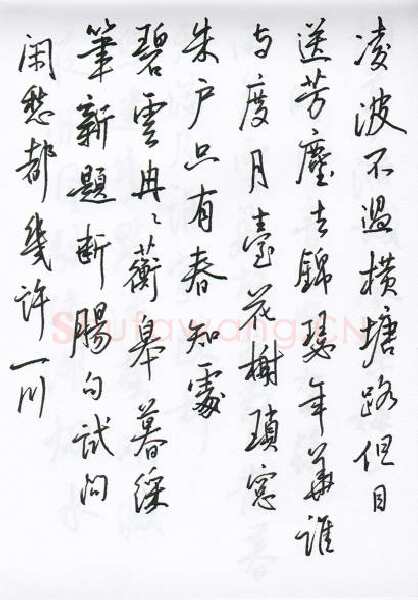 凌波不過横塘路但目
送芳塵去錦瑟年華誰
与度月臺花榭瑣窓
朱户只有春知處
碧雲冉々蘅皋暮綵
筆新題断腸句試问
闲愁都幾許一川
Shufawang.CN